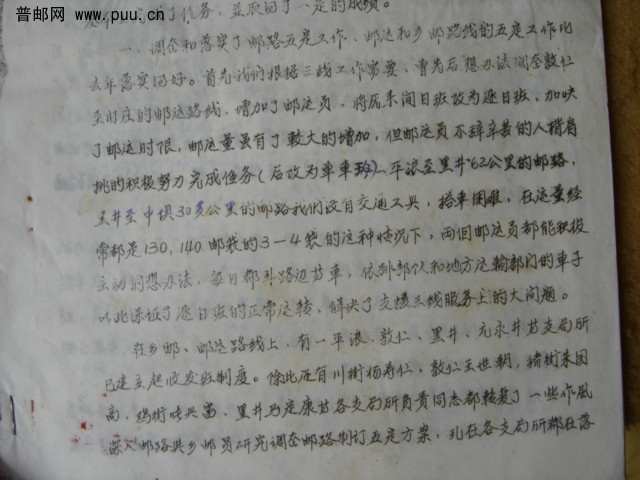 普邮网 www.puu.cn
了任务，并取得了一定的成绩。
一、调查和落实了邮路五定工作，邮运和乡邮路线的五定工作比
去年落实得好。首先我们根据三线工作需要，曾先后想办法调查敦仁
至时度的邮运路线，增加了邮运员，将原来间日班改为逐日班，加快
了邮运时限，邮运量虽有了较大的增加，但邮运员不辞辛苦的人揹肩
挑的积极努力完成任务（后改为单车班）一平浪至黑井62公里的邮路，
黑井至中坝30多公里的邮路我们没有交通工具，搭车困难，在这量经
常都是130，140邮袋的3—4袋的这种情况下，而但邮运员都能积极
主动的想办法，每日都到路边拦车，依靠部队和地方运输部门的车子
以此保证了逐日班的正常运转、解决了支援三线服务上的大问题。
在乡邮、邮运路线上，有一平浪、敦仁、黑井、元永井等支局所
已建立起收发班制度。除此还有川街杨寿仁、敦仁王世朝，猪街朱国
高、兴富、黑井马定康等各支局所负责同志都转变了一些作风
深入邮路与乡邮员研究调查邮路制订五定方案，现在各支局所都在落